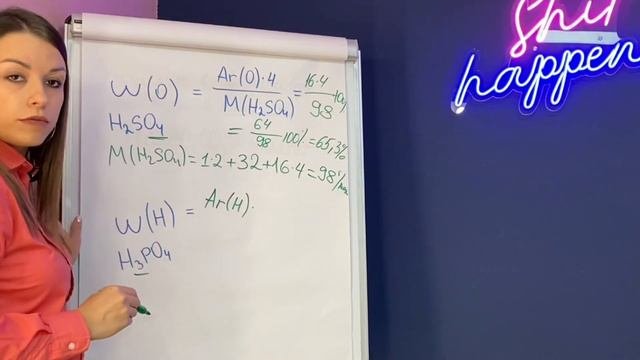 W(O) = Ar(O)·4 / M(H₂SO₄) = 16·4 / 98
H₂SO₄ = 64 / 98 · 100% = 65,3%
M(H₂SO₄) = 1·2 + 32 + 16·4 = 98
W(H) = Ar(H)·
H₃PO₄
happen